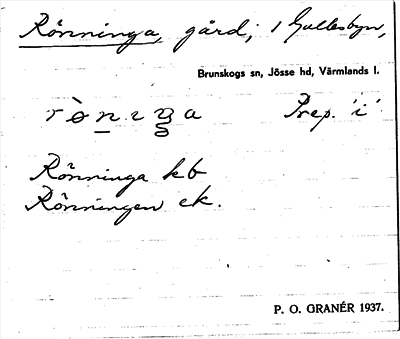 Rönninga, gård; i Gullesbyn,
Brunskogs sn, Jösse hd, Värmlands l.
Prep. 'i'
Rönninga kb
Rönningen ek.
P. O. GRANÉR 1937.